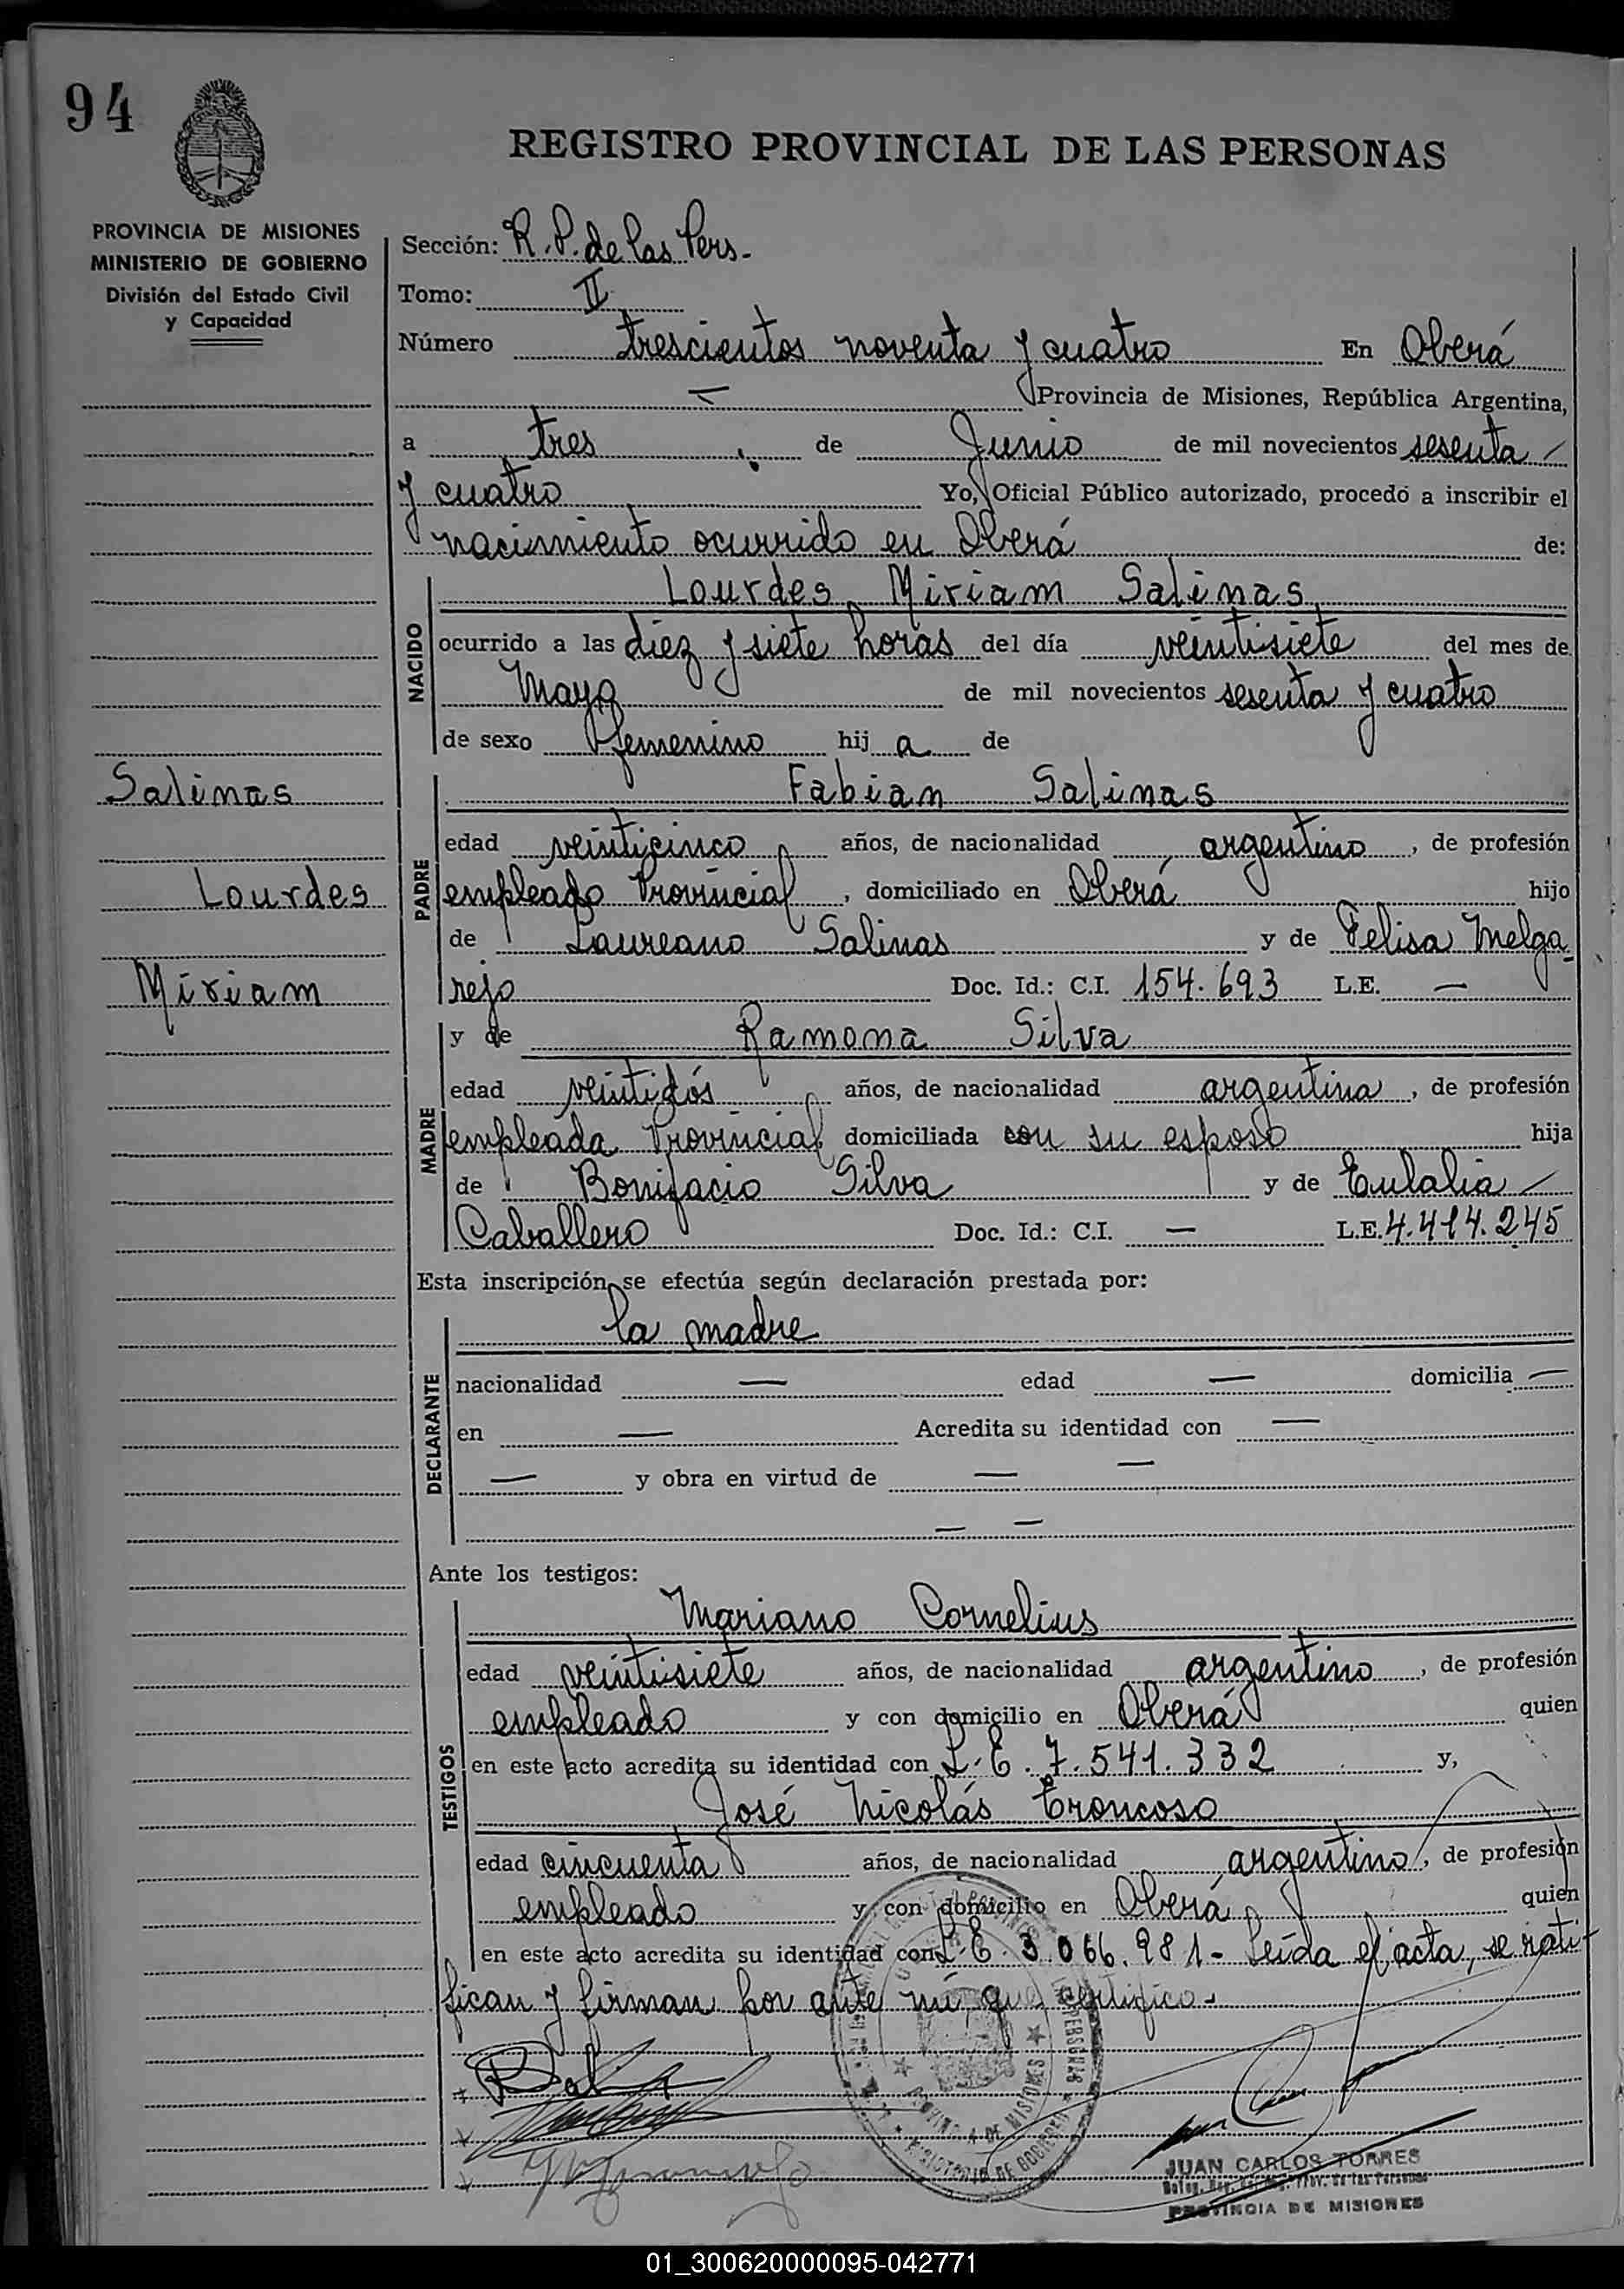 94
REGISTRO PROVINCIAL DE LAS PERSONAS
PROVINCIA DE MISIONES
MINISTERIO DE GOBIERNO
División del Estado Civil
y Capacidad
Sección: R. P. de las Pers.
Tomo: II
Número trescientos noventa y cuatro En Oberá
— Provincia de Misiones, República Argentina,
a tres de Junio de mil novecientos sesenta
y cuatro Yo, Oficial Público autorizado, procedo a inscribir el
nacimiento ocurrido en Oberá de:
NACIDO
Lourdes Miriam Salinas
ocurrido a las diez y siete horas del día veintisiete del mes de
Mayo de mil novecientos sesenta y cuatro
de sexo femenino hij a de
Salinas
Lourdes
Miriam
PADRE
Fabian Salinas
edad veinticinco años, de nacionalidad argentino, de profesión
empleado Provincial, domiciliado en Oberá hijo
de Laureano Salinas y de Felisa Melga
rejo Doc. Id.: C.I. 154.693 L.E. —
MADRE
y de Ramona Silva
edad veintidós años, de nacionalidad argentina, de profesión
empleada Provincial, domiciliada con su esposo hija
de Bonifacio Silva y de Eulalia
Caballero Doc. Id.: C.I. — L.E. 4.414.245
Esta inscripción se efectúa según declaración prestada por:
DECLARANTE
la madre
nacionalidad — edad — domicilia —
en — Acredita su identidad con —
— y obra en virtud de — —
— —
Ante los testigos:
TESTIGOS
Mariano Cornelius
edad veintisiete años, de nacionalidad argentino, de profesión
empleado y con domicilio en Oberá quien
en este acto acredita su identidad con L.E. 7.541.332 y,
José Nicolás Troncoso
edad cincuenta años, de nacionalidad argentino, de profesión
empleado y con domicilio en Oberá quien
en este acto acredita su identidad con L.E. 3.066.981- Leída el acta, se rati-
fican y firman por ante mí que certifico.
PROVINCIA DE MISIONES
MINISTERIO DE GOBIERNO
JUAN CARLOS TORRES
PROVINCIA DE MISIONES
01_300620000095-042771